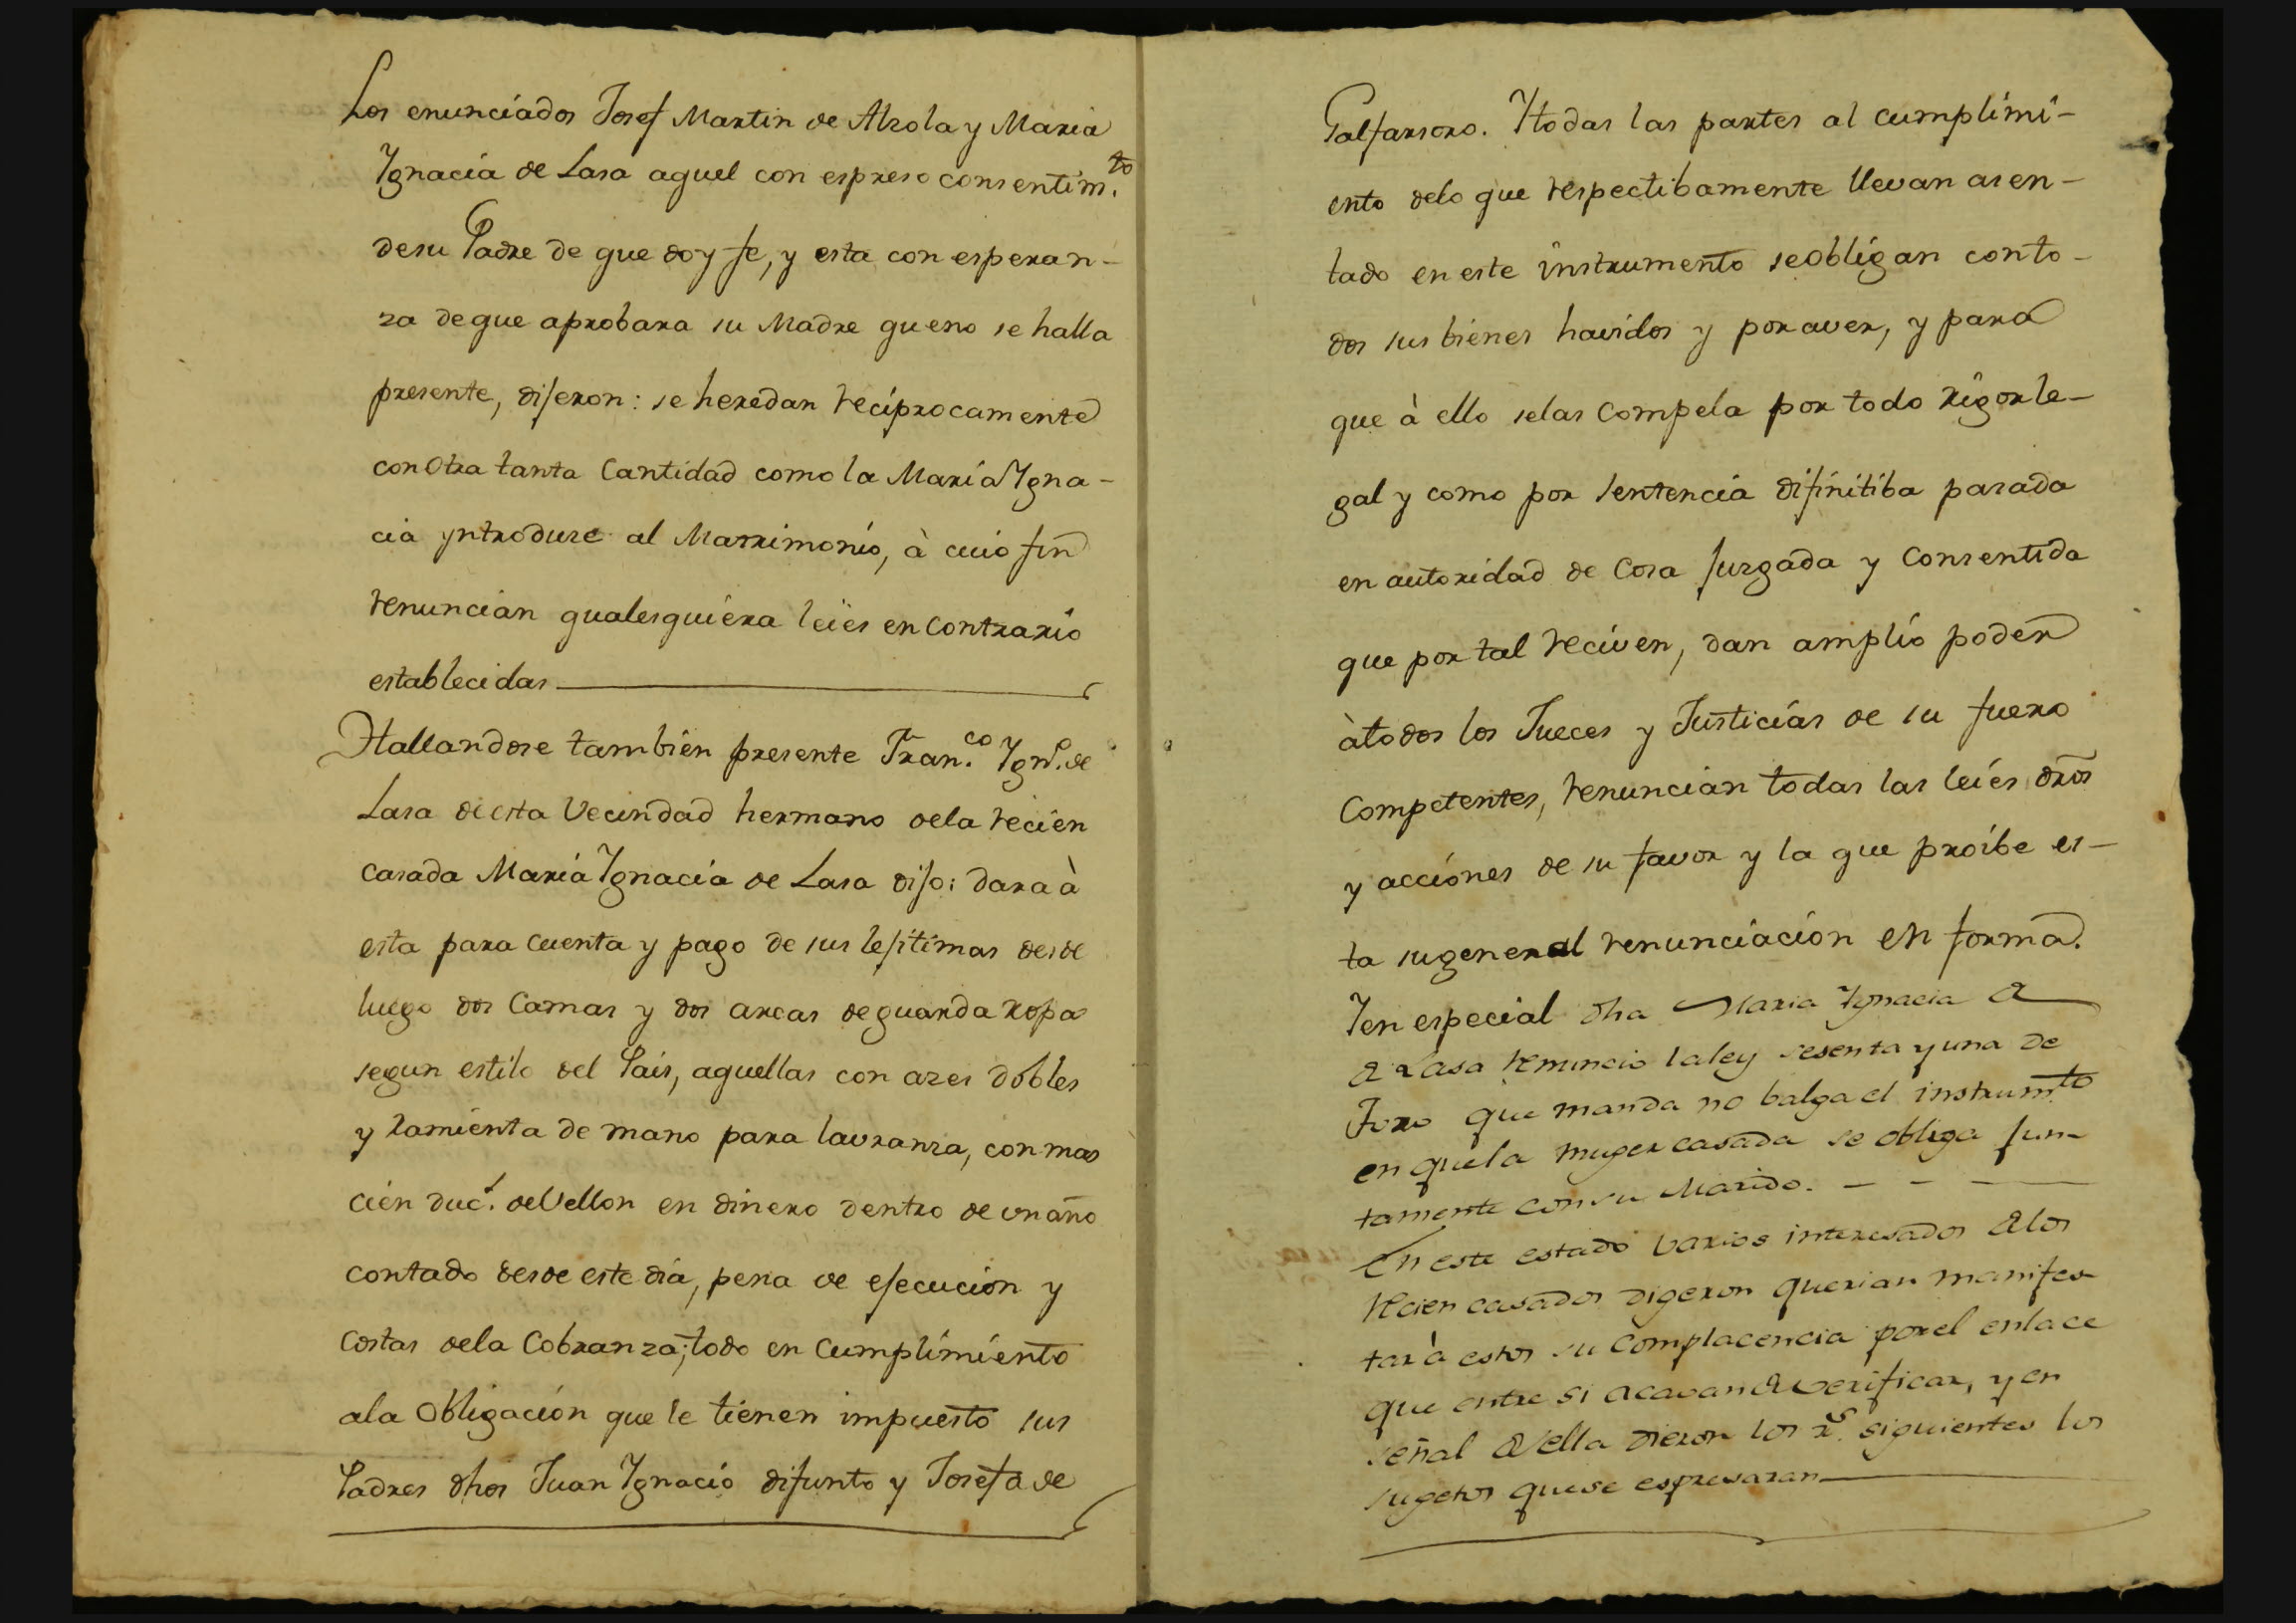 Los enunciados Josef Martin de Alzola y Maria
Ygnacia de Lasa aquel con espreso consentim.to
desu Padre de que doy fe, y esta con esperan-
za deque aprobara su Madre queno se halla
presente, dijeron: se heredan reciprocamente
con Otra tanta Cantidad como la Maria Ygna-
cia yntroduze al Matrimonio, à cuio fin
renuncian qualesquiera leies en Contrario
establecidas
Hallandose tambien presente Fran.co Ygn.o de
Lasa de esta Vecindad hermano dela recien
casada Maria Ygnacia de Lasa dijo: dara à
esta para cuenta y pago de sus lejitimas desde
luego dos Camas y dos arcas de guarda ropa
segun estilo del Pais, aquellas con azes dobles
y ramienta de mano para lavranza, con mas
cien duc.s de Vellon en dinero dentro de un año
contado desde este dia, pena de ejecucion y
costas dela Cobranza, todo en Cumplimiento
ala Obligacion que le tienen impuesto sus
Padres dhos Juan Ygnacio difunto y Josefa de
Galfarsoro. Ytodas las partes al cumplimi-
ento delo que respectibamente llevan asen-
tado en este instrumento se obligan con to-
dos sus bienes havidos y por aver, y para
que à ello selas Compela por todo rigor le-
gal y como por sentencia difinitiba pasada
en autoridad de Cosa Juzgada y Consentida
que por tal reciven, dan amplio poder
àtodos los Jueces y Justicias de su fuero
Competentes, renuncian todas las leies dros
y acciones de su favor y la que proibe es-
ta sugeneral renunciacion en forma.
Yen especial dha Maria Ygnacia de
de Lasa renuncio la ley sesenta y una de
Toro que manda no balga el instrum.to
en quela muger casada se obliga jun-
tamente con su Marido. - - -
En este estado varios interesados de los
recien casados digeron querian manifes-
tar à estos su Complacencia por el enlace
que entre si acavan de verificar, y en
señal de ella dieron los r.s siguientes los
sugetos que se espresaran